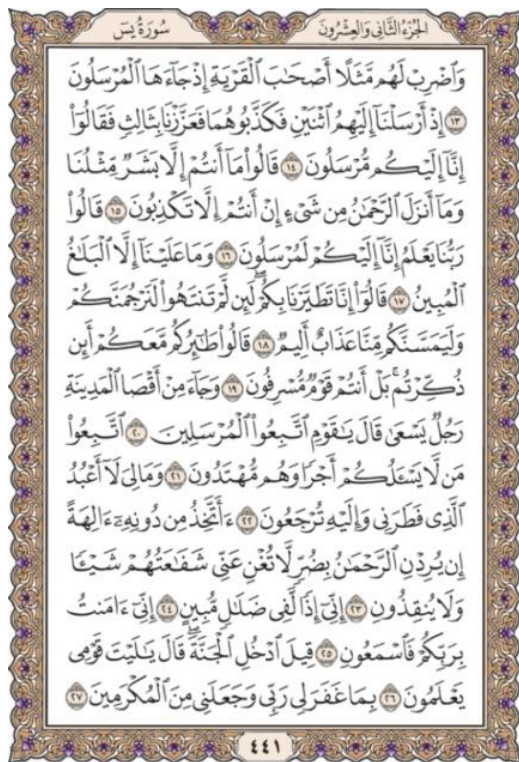 سُورَةُ يسٓ
الجُزْءُ الثَّانِي وَالعِشْرُونَ
وَٱضْرِبْ لَهُم مَّثَلًا أَصْحَٰبَ ٱلْقَرْيَةِ إِذْ جَآءَهَا ٱلْمُرْسَلُونَ
١٣ إِذْ أَرْسَلْنَآ إِلَيْهِمُ ٱثْنَيْنِ فَكَذَّبُوهُمَا فَعَزَّزْنَا بِثَالِثٍ فَقَالُوٓا۟
إِنَّآ إِلَيْكُم مُّرْسَلُونَ ١٤ قَالُوا۟ مَآ أَنتُمْ إِلَّا بَشَرٌ مِّثْلُنَا
وَمَآ أَنزَلَ ٱلرَّحْمَٰنُ مِن شَىْءٍ إِنْ أَنتُمْ إِلَّا تَكْذِبُونَ ١٥ قَالُوا۟
رَبُّنَا يَعْلَمُ إِنَّآ إِلَيْكُمْ لَمُرْسَلُونَ ١٦ وَمَا عَلَيْنَآ إِلَّا ٱلْبَلَٰغُ
ٱلْمُبِينُ ١٧ قَالُوٓا۟ إِنَّا تَطَيَّرْنَا بِكُمْ ۖ لَئِن لَّمْ تَنتَهُوا۟ لَنَرْجُمَنَّكُمْ
وَلَيَمَسَّنَّكُم مِّنَّا عَذَابٌ أَلِيمٌ ١٨ قَالُوا۟ طَٰٓئِرُكُم مَّعَكُمْ ۚ أَئِن
ذُكِّرْتُم ۚ بَلْ أَنتُمْ قَوْمٌ مُّسْرِفُونَ ١٩ وَجَآءَ مِنْ أَقْصَا ٱلْمَدِينَةِ
رَجُلٌ يَسْعَىٰ قَالَ يَٰقَوْمِ ٱتَّبِعُوا۟ ٱلْمُرْسَلِينَ ٢٠ ٱتَّبِعُوا۟
مَن لَّا يَسْـَٔلُكُمْ أَجْرًا وَهُم مُّهْتَدُونَ ٢١ وَمَا لِىَ لَآ أَعْبُدُ
ٱلَّذِى فَطَرَنِى وَإِلَيْهِ تُرْجَعُونَ ٢٢ ءَأَتَّخِذُ مِن دُونِهِۦٓ ءَالِهَةً
إِن يُرِدْنِ ٱلرَّحْمَٰنُ بِضُرٍّ لَّا تُغْنِ عَنِّى شَفَٰعَتُهُمْ شَيْـًٔا
وَلَا يُنقِذُونِ ٢٣ إِنِّىٓ إِذًا لَّفِى ضَلَٰلٍ مُّبِينٍ ٢٤ إِنِّىٓ ءَامَنتُ
بِرَبِّكُمْ فَٱسْمَعُونِ ٢٥ قِيلَ ٱدْخُلِ ٱلْجَنَّةَ ۖ قَالَ يَٰلَيْتَ قَوْمِى
يَعْلَمُونَ ٢٦ بِمَا غَفَرَ لِى رَبِّى وَجَعَلَنِى مِنَ ٱلْمُكْرَمِينَ ٢٧
٤٤١